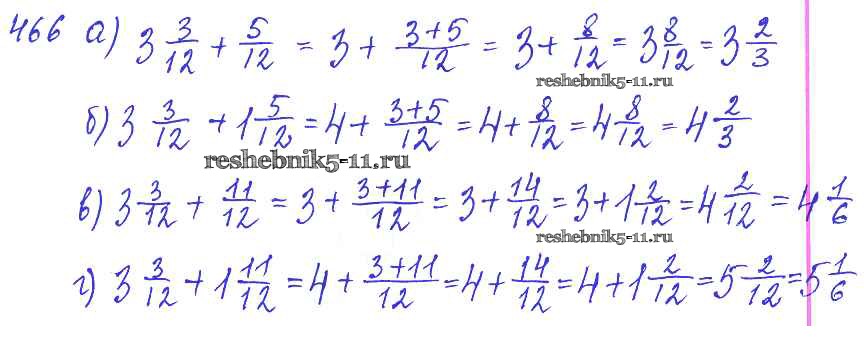 466 а) 3 3/12 + 5/12 = 3 + (3+5)/12 = 3 + 8/12 = 3 8/12 = 3 2/3
reshebnik5-11.ru
б) 3 3/12 + 1 5/12 = 4 + (3+5)/12 = 4 + 8/12 = 4 8/12 = 4 2/3
reshebnik5-11.ru
в) 3 3/12 + 11/12 = 3 + (3+11)/12 = 3 + 14/12 = 3 + 1 2/12 = 4 2/12 = 4 1/6
reshebnik5-11.ru
г) 3 3/12 + 1 11/12 = 4 + (3+11)/12 = 4 + 14/12 = 4 + 1 2/12 = 5 2/12 = 5 1/6